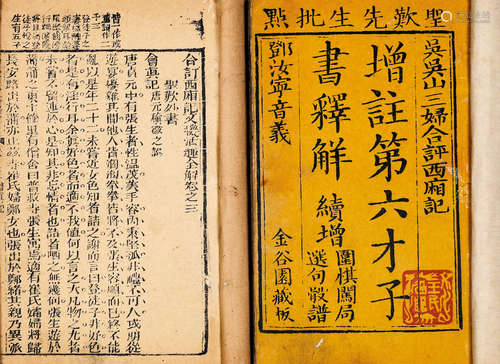 聖歎先生批點
吳吳山三婦合評西廂記
增註第六才子
書釋解
續增
圍棋闖局
選句骰譜
鄧汝寧音義
金谷園藏板
合訂西廂記文機活趣全解卷之三
聖歎外書
會真記
唐元稹微之譔
唐貞元中有張生者性溫茂美丰容內秉堅孤非禮不可入或朋從
遊宴擾雜其間他人皆洶洶拳拳若將不及張生容順而已終不能
亂以是年二十二未嘗近女色知者詰之謝而言曰登徒子非好色
者是有淫行耳余真好色者而適不我值何以言之大凡物之尤者
未嘗不留連於心是知其非忘情者也詰者哂之無幾何張生遊於
蒲蒲之東十餘里有僧舍曰普救寺張生寓焉適有崔氏孀婦將歸
長安路出於蒲亦止茲寺崔氏婦鄭女也張出於鄭緒其親乃異派